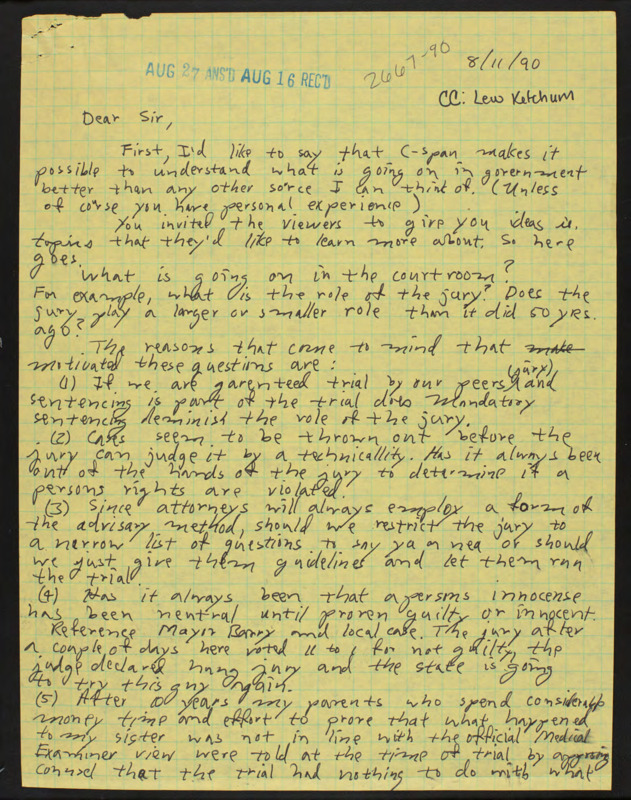 AUG 27 ANS'D AUG 16 REC'D
2667-90
8/11/90
CC: Lew Ketchum
Dear Sir,
First, I'd like to say that C-span makes it
possible to understand what is going on in government
better than any other sorce I can think of. (Unless
of corse you have personal experience)
You invited the viewers to give you ideas ie.
topics that they'd like to learn more about. So here
goes.
What is going on in the courtroom?
For example, what is the role of the jury? Does the
jury play a larger or smaller role than it did 50 yrs.
ago?
The reasons that come to mind that make
motivated these questions are:
(1) If we are garenteed trial by our peers (jury) and
sentencing is part of the trial does mandatory
sentencing deminish the role of the jury.
(2) Cases seem to be thrown out before the
jury can judge it by a technicallity. Has it always been
out of the hands of the jury to determine if a
persons rights are violated.
(3) Since attorneys will always employ a form of
the advisary method, should we restrict the jury to
a narrow list of questions to say ya or nea or should
we just give them guidelines and let them run
the trial
(4) Has it always been that a persons innocense
has been neutral until proven guilty or innocent.
Reference Mayor Barry and local case. The jury after
a couple of days here voted 11 to 1 for not guilty, the
judge declared hung jury and the state is going
to try this guy again.
(5) After 10 years my parents who spend considerabl
money time and effort to prove that what happened
to my sister was not in line with the official Medical
Examiner view were told at the time of trial by opposing
counsel that the trial had nothing to do with what